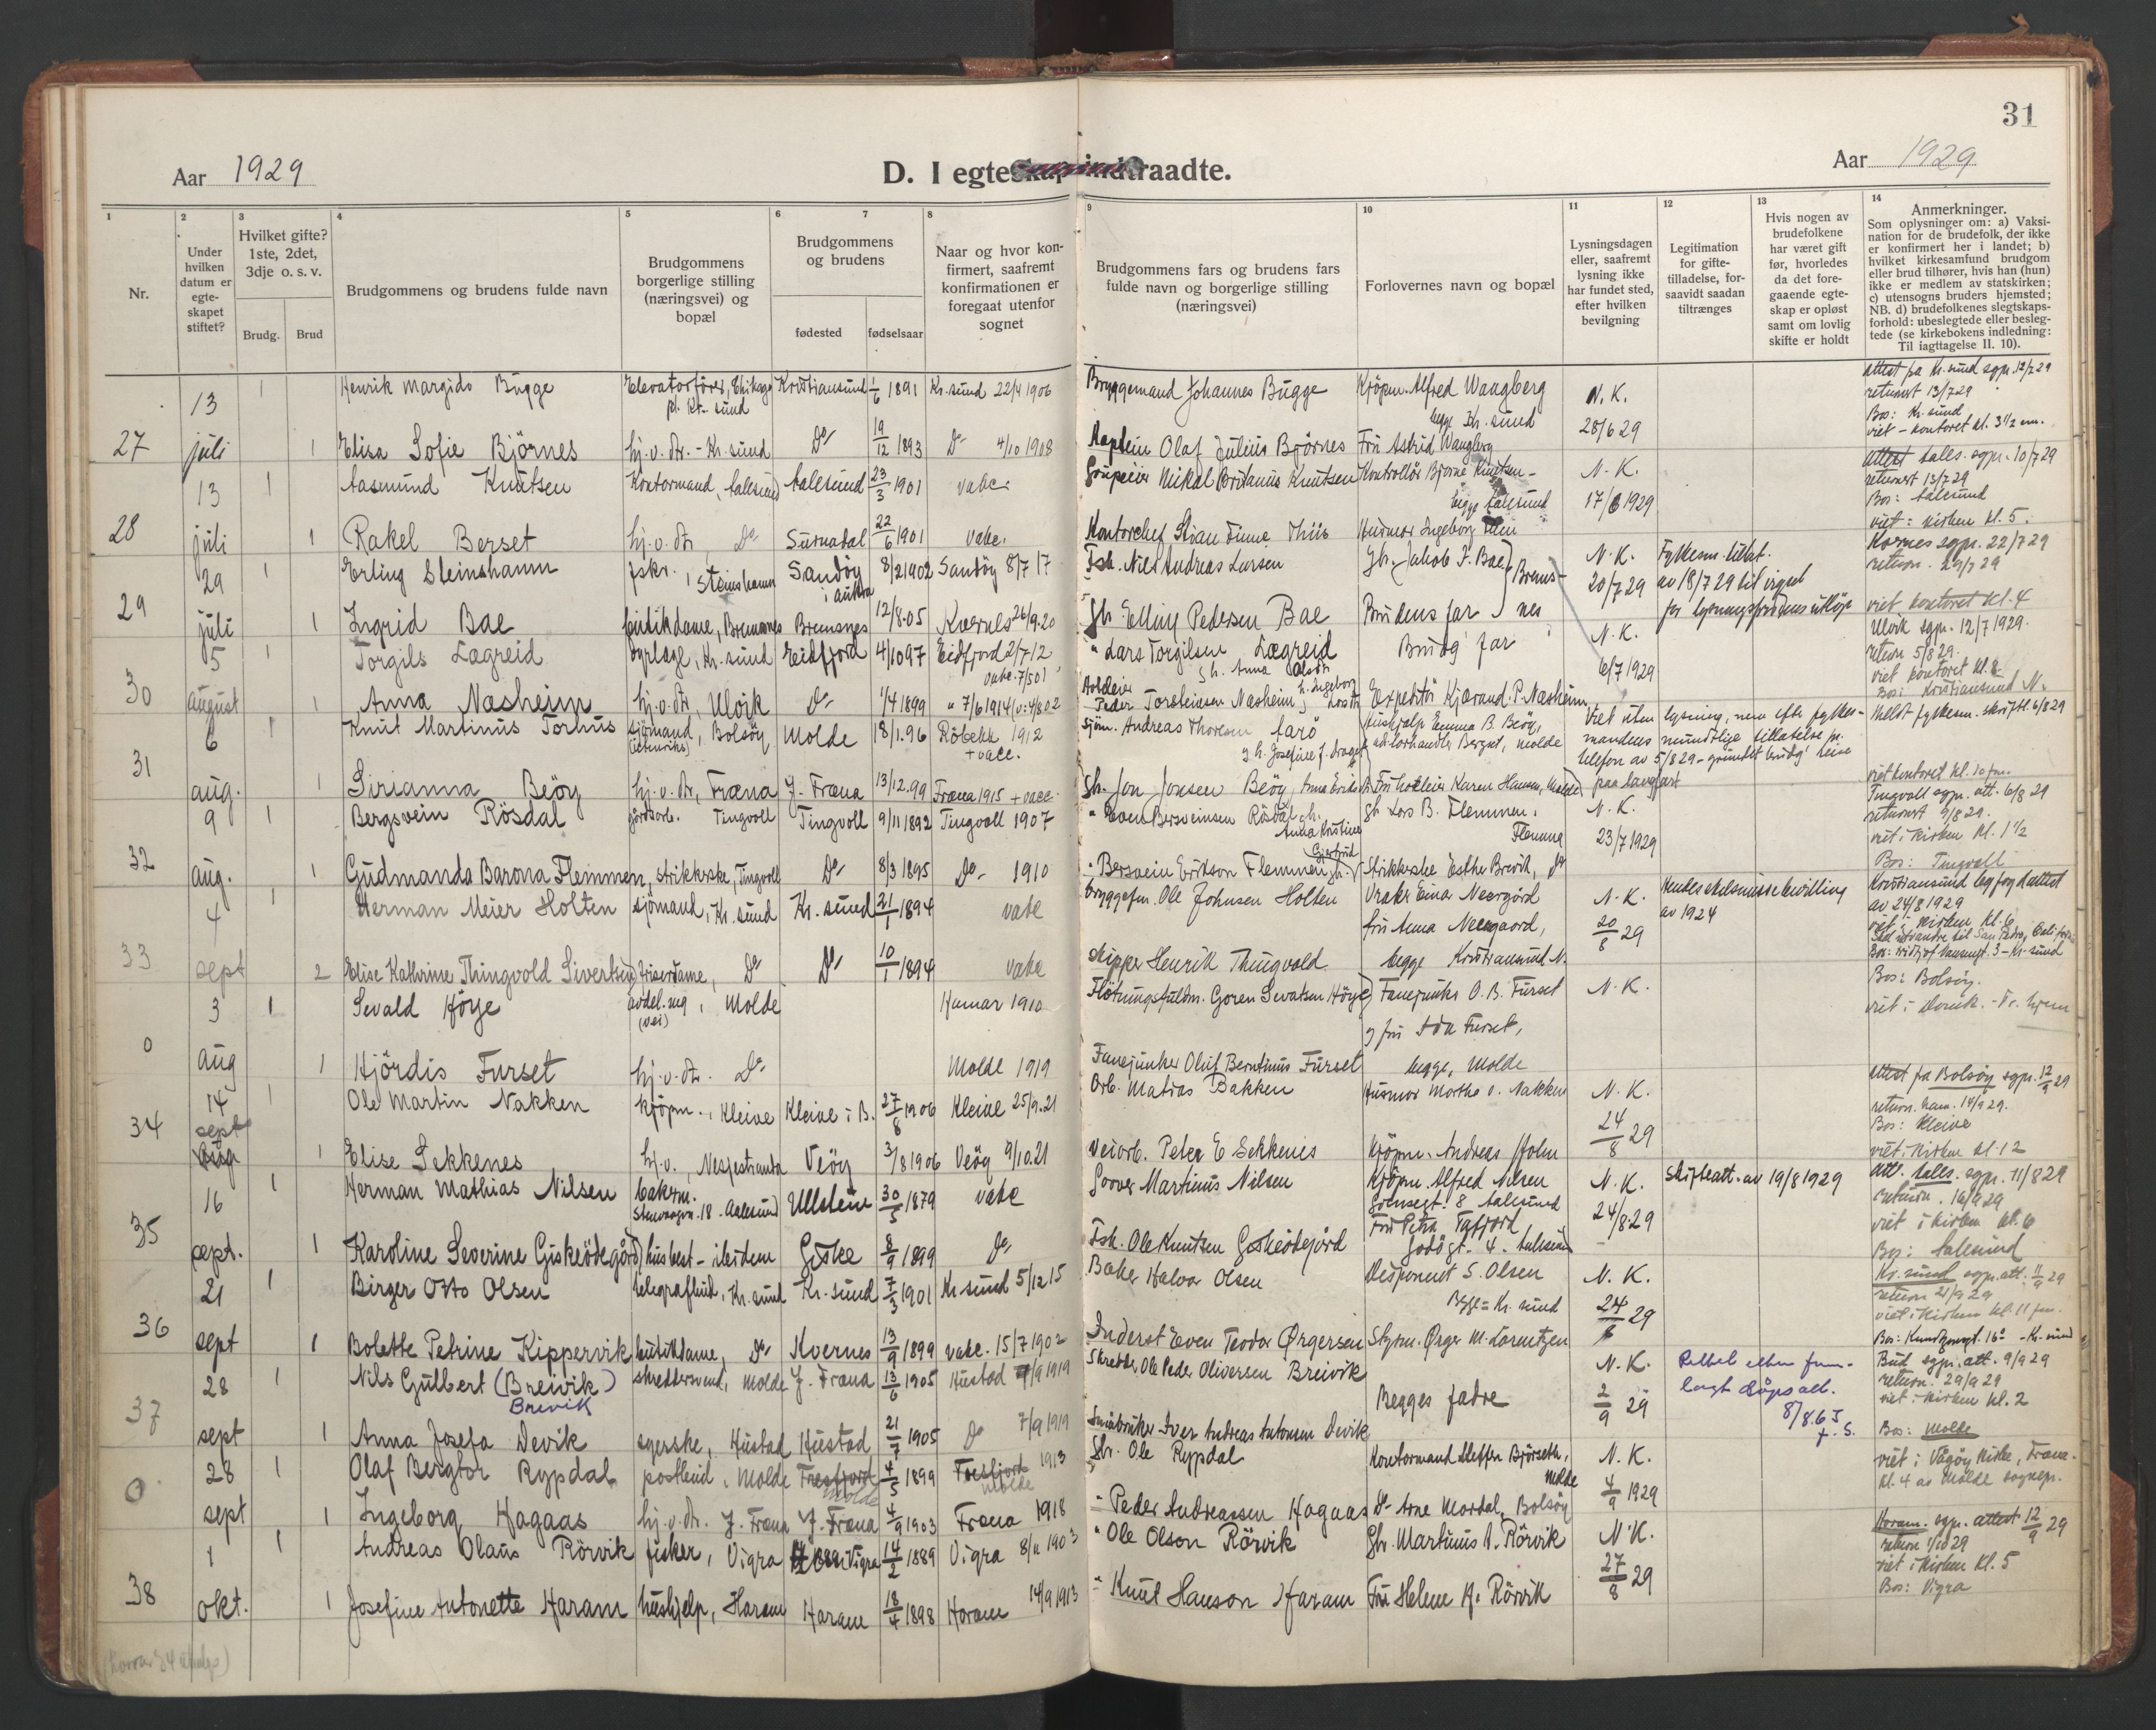 31
Aar 1929
D. I egteskap indtraadte.
Aar 1929
1 2 3 4 5 6 7 8 9 10 11 12 13 14
Nr.
Under hvilken datum er egteskapet stiftet?
Hvilket gifte? 1ste, 2det, 3dje o. s. v.
Brudg. Brud
Brudgommens og brudens fulde navn
Brudgommens borgerlige stilling (næringsvei) og bopæl
Brudgommens og brudens
fødested fødselsaar
Naar og hvor konfirmert, saafremt konfirmationen er foregaat utenfor sognet
Brudgommens fars og brudens fars fulde navn og borgerlige stilling (næringsvei)
Forlovernes navn og bopæl
Lysningsdagen eller, saafremt lysning ikke har fundet sted, efter hvilken bevilgning
Legitimation for giftetilladelse, forsaavidt saadan tiltrænges
Hvis nogen av brudefolkene har været gift før, hvorledes da det foregaaende egteskap er opløst samt om lovlig skifte er holdt
Anmerkninger.
Som oplysninger om: a) Vaksination for de brudefolk, der ikke er konfirmert her i landet; b) hvilket kirkesamfund brudgom eller brud tilhører, hvis han (hun) ikke er medlem av statskirken; c) utensogns bruders hjemsted; NB. d) brudefolkenes slegtskapsforhold: ubeslegtede eller beslegtede (se kirkebokens indledning: Til iagttagelse II. 10).
13 1 Henrik Margido Bugge Elevatorfører, Chikago Kristiansund 1/6 1891 Kr.sund 22/4 1906 Bryggemand Johannes Bugge Kjöpm. Alfred Waagberg N. K. attest fra Kr.sund sgpr. 12/7 29
p.t. Kr. sund begge Kr. sund 28/6 29 returnert 13/7 29
Bos: Kr. sund
27 juli 1 Elisa Sofie Björnes hj.v.dr. - Kr. sund Do 19/12 1893 Do 4/10 1908 Kaptein Olaf Julius Björnes Fru Astrid Waagberg viet - kontoret kl. 3 1/2 em.
13 1 Aasmund Knutsen Kontormand, Aalesund Aalesund 23/3 1901 vake. Mikal Britanus Knutsen Kontrollör Bjarne Knutsen N. K. attest Aalls. sgpr. 10/7 29
begge Aalesund 17/6 1929 returnert 13/7 29
Bos: Aalesund
28 juli 1 Rakel Berset hj.v.dr, Do Surnadal 22/6 1901 vake. Kontorchef Stian Finne Thiis Husmor Ingeborg viet: kirken kl. 5.
29 1 Erling Steinshamn fskr., Steinshamn Sandöy i Aukra 8/2 1902 Sandöy 8/7 17 Fsk. Nils Andreas Larsen Gbr. Jakob P. Bae N. K. Fylkesm. tillat. Kornes sgpr. 22/7 29
20/7 29 av 18/7 29 til vigsel return. 29/7 29
29 juli 1 Ingrid Bae butikdame, Bremsnes Bremsnes 12/8.05 Kvernes 26/9.20 Gbr. Elling Pedersen Bae Brudens far Bremsnes för lysningsfristens utlöp viet kontoret kl. 4
5 1 Torgils Lægreid Eidfjord 4/10 97 Eidfjord 2/7 12 " Lars Torgilsen Lægreid Brudg far N. K. Ulvik sgpr. 12/7 1929.
vake. 7/5 01 g.h. Anna Olsdtr 6/7 1929 return 5/8 29
viet kontoret kl. 2
30 august 1 Anna Nasheim hj.v.dr, Ulvik Do 1/4 1899 " 7/6 1914 (v: 4/8 02 Peder Torsteinsen Nasheim Expeditör Kjærand P. Nasheim Bos: Kristiansund N.
6 1 Knut Martinus Torhus sjömand, Bolsöy Molde 18/1.96 Röbekk 1912 Sjöm. Andreas Thoresen Aarö hushjelp Emma B. Beöy, Viet uten lysning, men efter fylkesmandens mundtlige tillatelse pr. Meldt fylkesm. skriftl. 6/8 29
+ vacc. Molde telefon av 5/8 29 - grundet brudg' reise
31 aug. 1 Sirianna Beöy hj.v.dr, Fræna Y. Fræna 13/12.99 Fræna 1915 + vacc. Gbr. Jon Jonsen Beöy, Fru hoteleier Karen Hansen, Molde paa langfart viet kontoret kl. 10 fm.
9 1 Bergsvein Rösdal gårdsarb. Tingvoll Tingvoll 9/11 1892 Tingvoll 1907 " Even Bersveinsen Rösdal gh. Gbr. Lars B. Flemmen. N. K. Tingvoll sgpr. att. 6/8 29
Anna Kristine Flemma 23/7 1929 returnert 9/8 29.
viet: kirken kl. 1 1/2
32 aug. 1 Gudmanda Barona Flemmen, strikkerske, Tingvoll Do 8/3 1895 Do 1910 " Bersvein Erikson Flemmen Strikkerske Esther Brevik, Do Bos: Tingvoll
4 1 Herman Meier Holten sjömand, Kr. sund Kr. sund 21/1 1894 vake bryggefm. Ole Johnsen Holten Vraker Einar Neergård N. K. Hendes skilsmissebevilling Kristiansund byfogd attest
fru Anna Neergaard, 20/8 29 av 1924 av 24/8 1929
viet: kirken kl. 6
33 sept 2 Elise Kathrine Thingvold Sivertsen frisördame, Do Do 10/1 1894 vake Skipper Henrik Thingvold begge Kristiansund N. Skal utvandre til San Pedro,
3 1 Sevald Höye avdel.ing, Molde Hamar 1910 Flötningsfuldm. Goren Sevatsen Höye Fanejunker O. B. Furset N. K. Bos: Bolsöy.
(vei) og fru Ada Furset,
0 aug 1 Hjördis Furset hj.v.dr. Do Molde 1919 Fanejunker Oluf Berntinus Furset begge, Molde
14 1 Ole Martin Nakken Kjöpm., Kleive Kleive i B. 27/8 1906 Kleive 25/9.21 Arb. Matias Bakken Husmor Marthe O. Nakken N. K. attest fra Bolsöy sgpr. 12/9 29
24/8 29 return. ham. 14/9 29.
Bos: Kleive
34 sept aug 1 Elise Sekkenes hj.v., Nesjestranda Veöy 3/8 1906 Veöy 9/10.21 Veiarb. Peter E Sekkenes Kjöpm. Andreas Holm viet: kirken kl. 12
16 1 Herman Mathias Nilsen bakerm. Ullstein 30/5 1879 vake Martinus Nilsen Kjöpm. Alfred Nilsen N. K. Skifteatt. av 19/8 1929 Att. Aalls. sgpr. 11/8 29
18. Aalesund 8 Aalesund 24/8.29 return. 16/9 29
Fru Petra Tafjord, viet i kirken kl. 6
35 sept. 1 Karoline Severine Giskeödegård husbest - ibidem Giske 8/9 1899 Do Fsk. Ole Knutsen Giskeödegård Godögt. 4. Aalesund Bos: Aalesund
21 1 Birger Otto Olsen telegrafbud, Kr. sund Kr. sund 7/3 1901 Kr. sund 5/12 15 Baker Halvor Olsen Disponent S. Olsen N. K. Kr. sund sgpr. att. 11/9 29
Begge = Kr. sund 24/8 29 return 21/9 29
viet i kirken kl. 11 fm.
36 sept 1 Bolette Petrine Kippervik butikdame, Do Kvernes 13/9 1899 vake. 15/7 1902 Inderst Even Teodor Ørgersen Styrm. Ørger M. Lorentzen - Kr. sund
28 1 Nils Gulbert (Breivik) skreddersvend, Molde Y. Fræna 13/6 1905 Hustad 7/9 1919 Skredder Ole Peder Oliversen Breivik N. K. Rettet etter fremlagt dåpsatt. Bud sgpr. att. 9/9 29
Breivik Begges fædre 2/9 29 8/8.65 return. 29/9 29
viet: kirken kl. 2
37 sept 1 Anna Josefa Devik syerske, Hustad Hustad 21/7 1905 Do 7/9 1919 Småbruker Iver Andreas Antonsen Devik Bos: Molde
28 1 Olaf Bergtor Rypdal postbud, Molde Tresfjord Molde 4/5 1899 Tresfjord Molde 1913 Gbr. Ole Rypdal Kontormand Steffen Björseth, Molde N. K. viet i Vågöy kirke, Fræna.
4/9 1929 kl. 4 av Molde sognepr.
0 sept 1 Ingeborg Hagaas hj.v.dr. Y. Fræna Y. Fræna 4/9 1903 Fræna 1918 " Peder Andreassen Hagaas Do Arne Mordal, Bolsöy
1 1 Andreas Olaus Rörvik fisker, Vigra Vigra 14/2 1889 Vigra 8/11 1903 " Ole Olson Rörvik Gbr. Martinus A. Rörvik N. K. Haram. sgpr. attest 12/9 29
27/8 29 return 1/10 29
viet i kirken kl. 5
38 okt. 1 Josefine Antonette Haram hushjelp, Haram Haram 18/4 1898 Haram 14/9 1913 " Knut Hanson Haram Fru Helene A. Rörvik Bos: Vigra